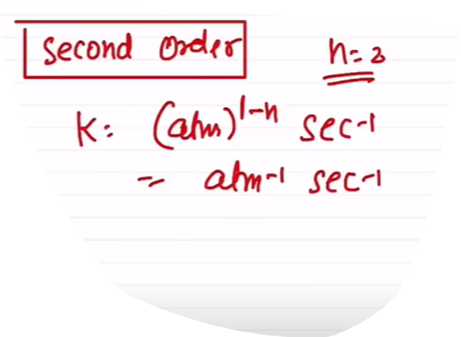 Second Order
n=2
K: (atm)^1-n sec-1
= atm-1 sec-1